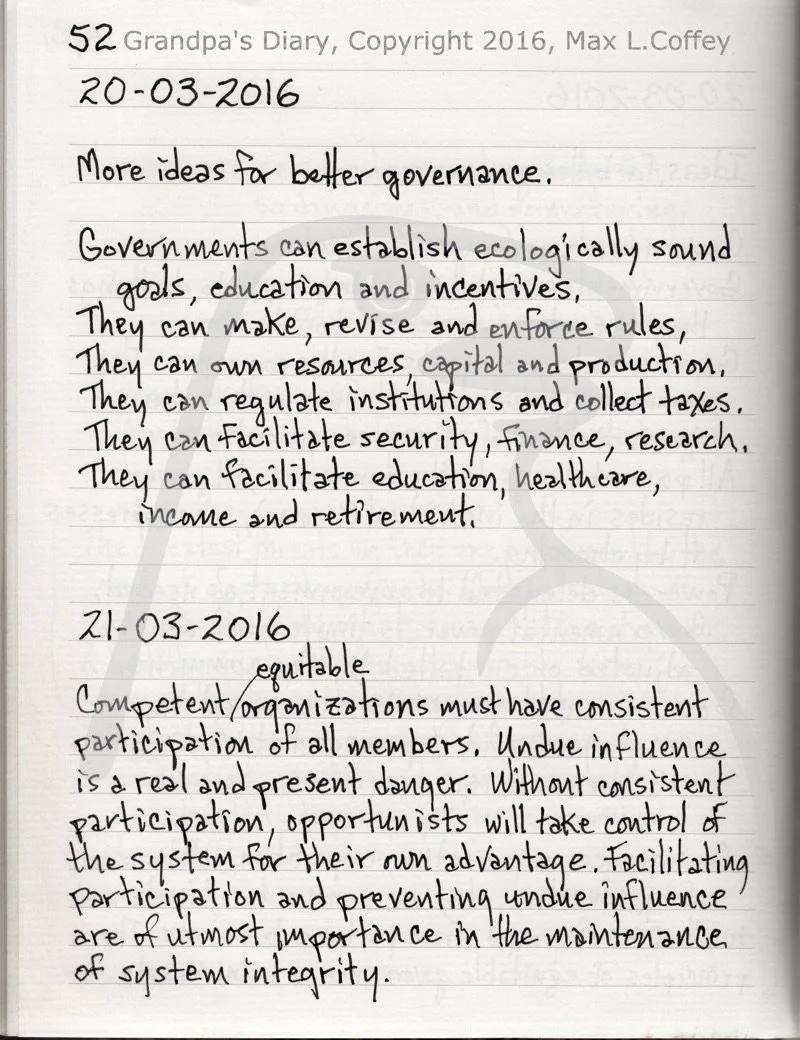 52 Grandpa's Diary, Copyright 2016, Max L.Coffey
20-03-2016
More ideas for better governance.
Governments can establish ecologically sound
goals, education and incentives,
They can make, revise and enforce rules,
They can own resources, capital and production,
They can regulate institutions and collect taxes.
They can facilitate security, finance, research.
They can facilitate education, healthcare,
income and retirement.
21-03-2016
equitable
Competent/organizations must have consistent
participation of all members. Undue influence
is a real and present danger. Without consistent
participation, opportunists will take control of
the system for their own advantage. Facilitating
participation and preventing undue influence
are of utmost importance in the maintenance
of system integrity.